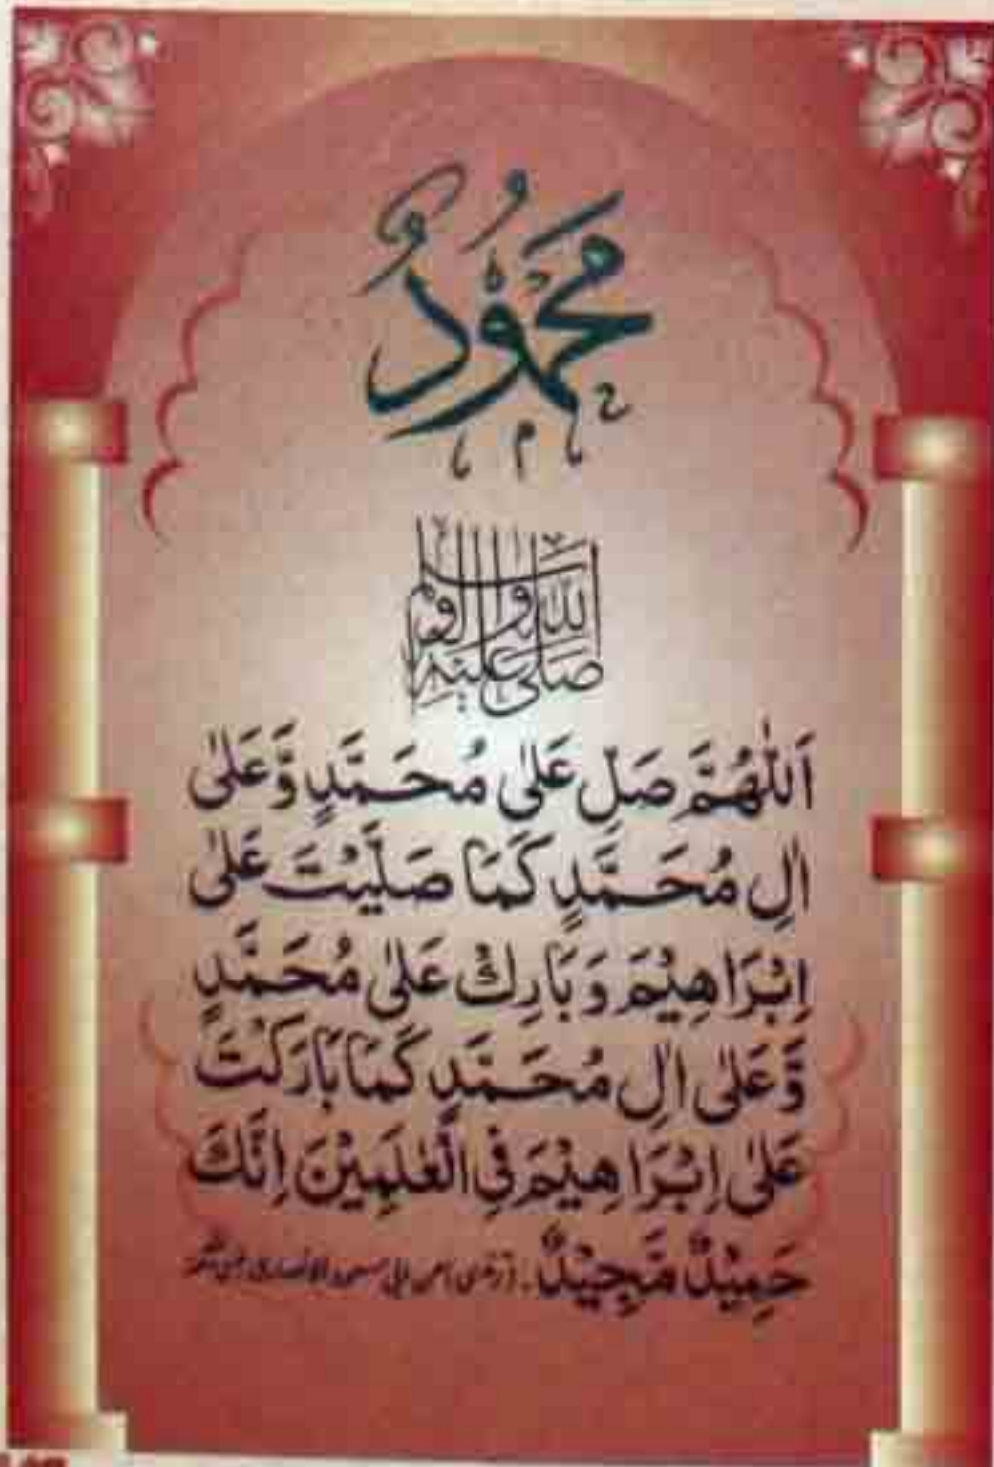 مَحْمُوْدٌ
صَلَّى اللّٰهُ عَلَيْهِ وَاٰلِهٖ وَسَلَّم
اَللّٰهُمَّ صَلِّ عَلٰى مُحَمَّدٍ وَّعَلٰى
اٰلِ مُحَمَّدٍ كَمَا صَلَّيْتَ عَلٰى
اِبْرَاهِيْمَ وَبَارِكْ عَلٰى مُحَمَّدٍ
وَّعَلٰى اٰلِ مُحَمَّدٍ كَمَا بَارَكْتَ
عَلٰى اِبْرَاهِيْمَ فِي الْعٰلَمِيْنَ اِنَّكَ
حَمِيْدٌ مَّجِيْدٌ۔ (ترمذی، عن ابی مسعود الانصاری